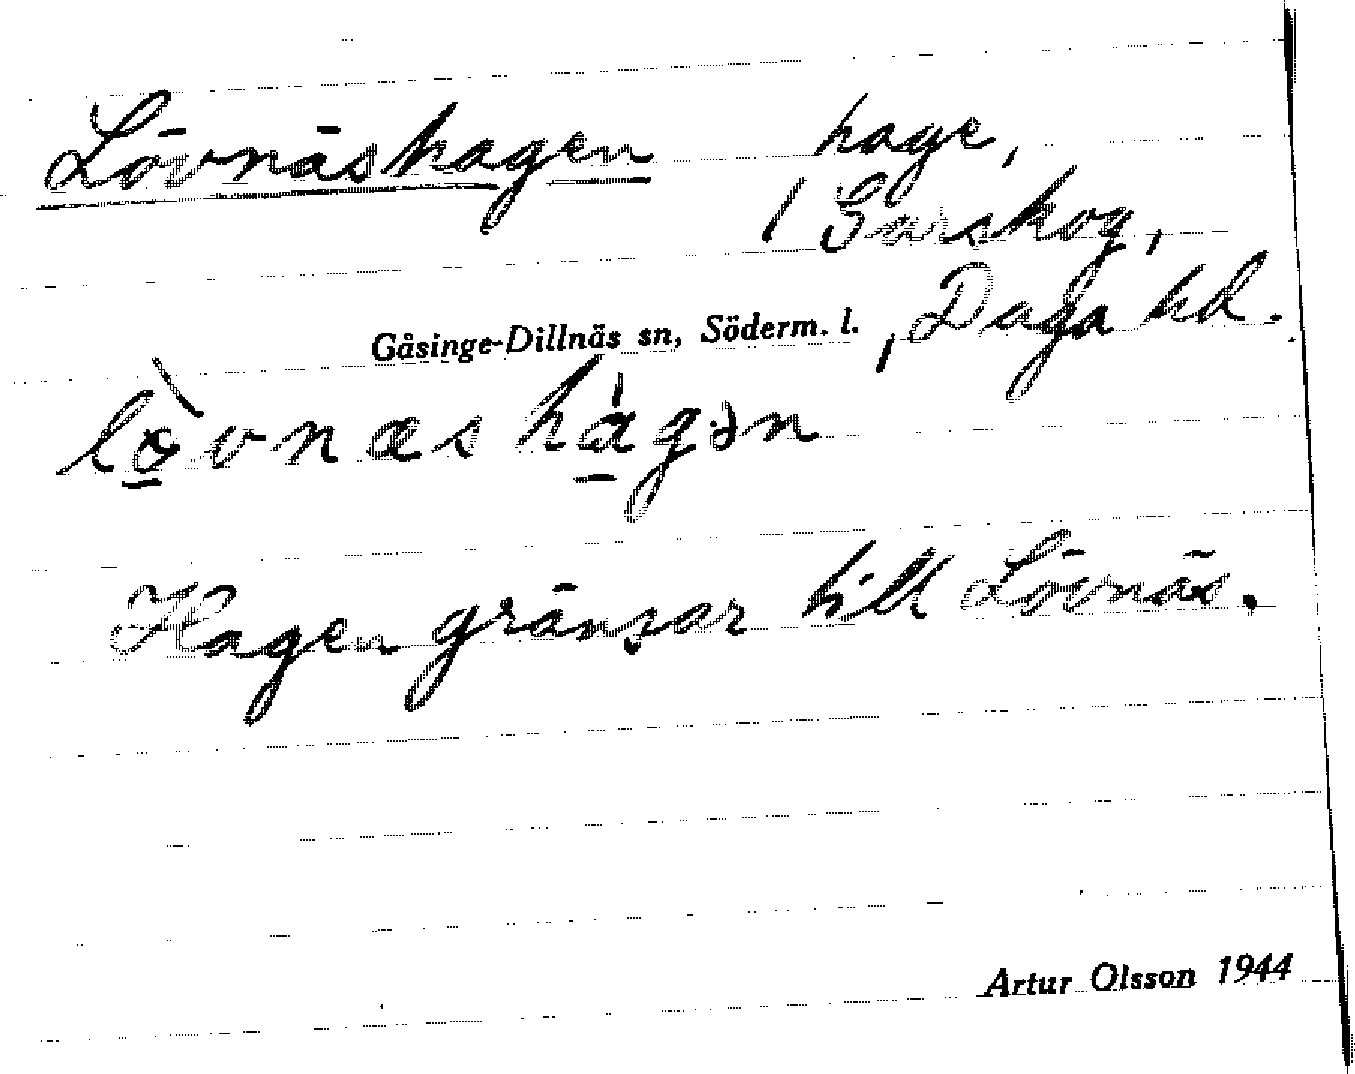 Lövnäshagen hage,
/ Garskog,
Gåsinge-Dillnäs sn, Söderm. l. , Daga hd.
lö̀vnæshágən
Hagen gränsar till Lövnäs.
Artur Olsson 1944